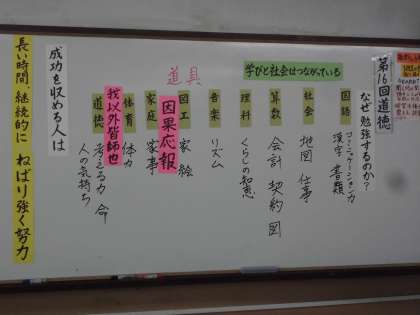 第16回道徳
なぜ勉強するのか?
学びと社会はつながっている
国語
コミュニケーション力
漢字 書類
社会
地図 仕事
算数
会計 契約 図
理科
くらしの知恵
音楽
リズム
道具
図工
家 絵
因果応報
家庭
家事
体育
体力
我以外皆師也
道徳
考える力 命
人の気持ち
成功を収める人は
長い時間、継続的に ねばり強く努力